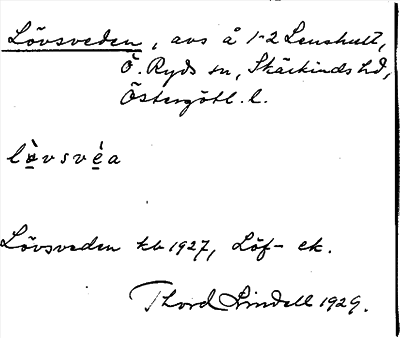 Lövsveden, avs å 1-2 Lenshult,
Ö. Ryds sn, Skärkinds hd,
Östergötl. l.
lövsvéa
Lövsveden kb 1927, Löf- ek.
Thord Lindell 1929.